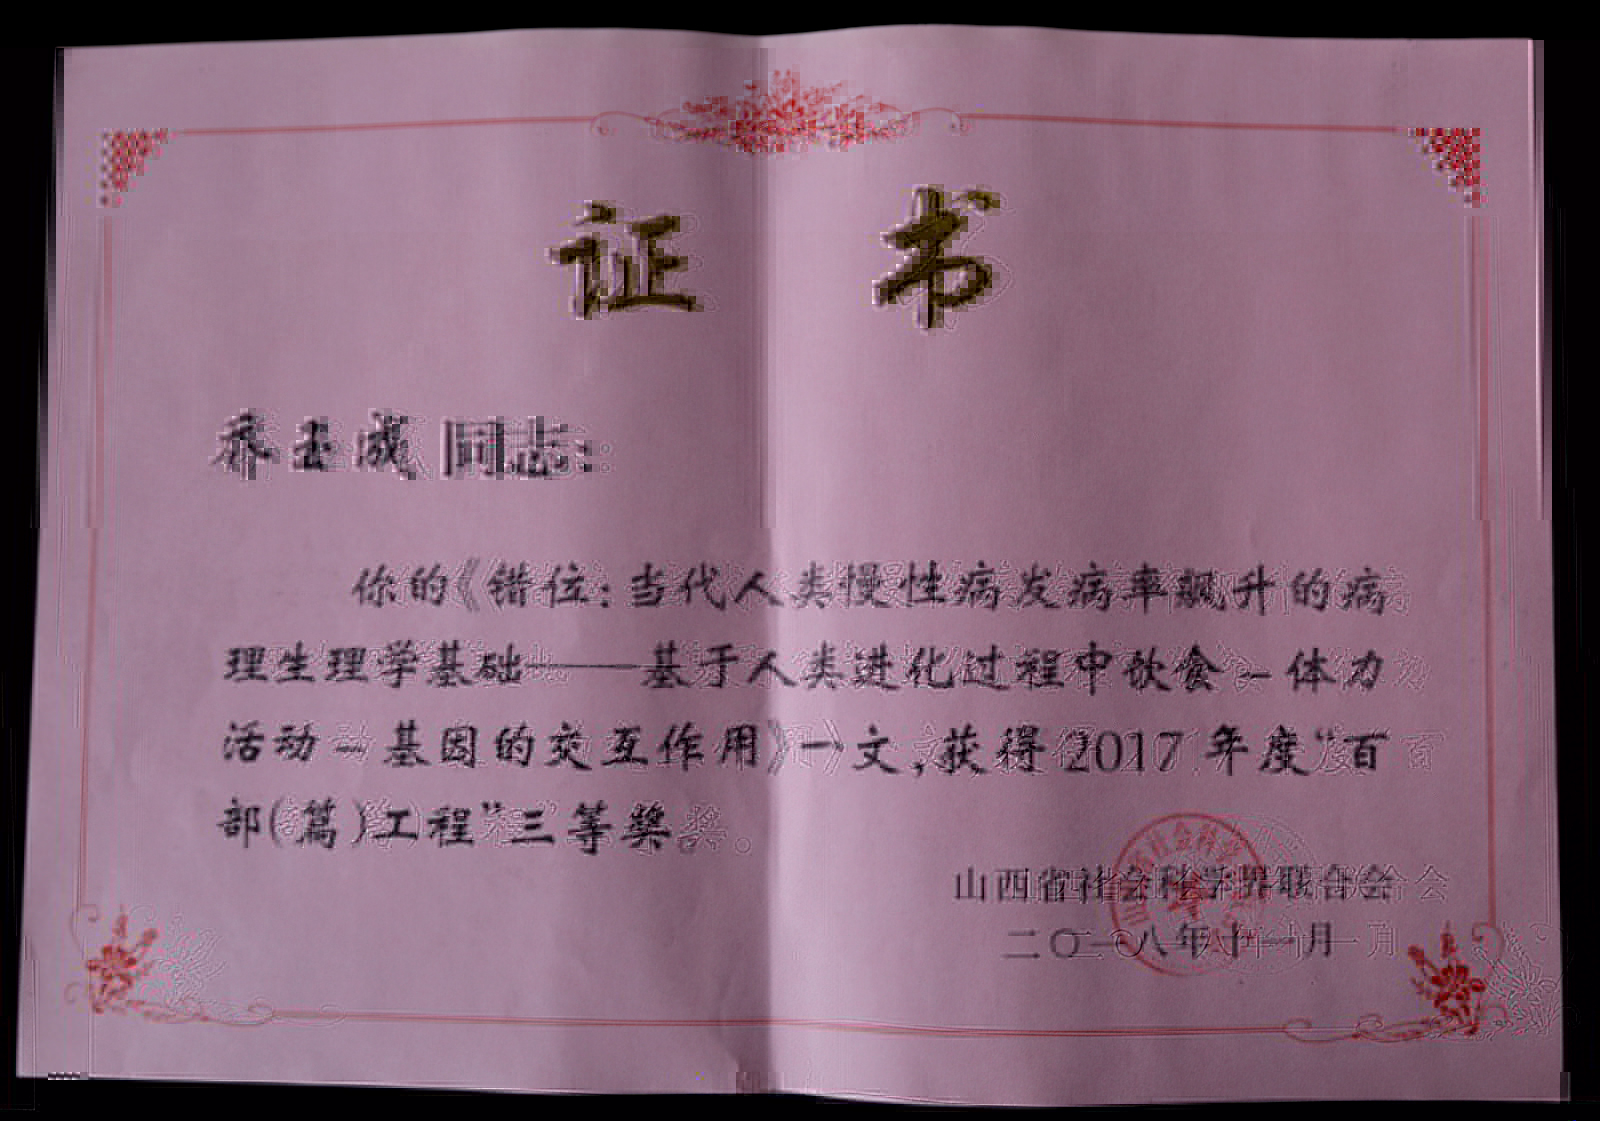 证 书
乔玉成 同志:
你的《错位:当代人类慢性病发病率飙升的病
理生理学基础——基于人类进化过程中饮食-体力
活动-基因的交互作用》一文,获得2017年度“百
部(篇)工程”三等奖。
山西省社会科学界联合会
二〇一八年十一月